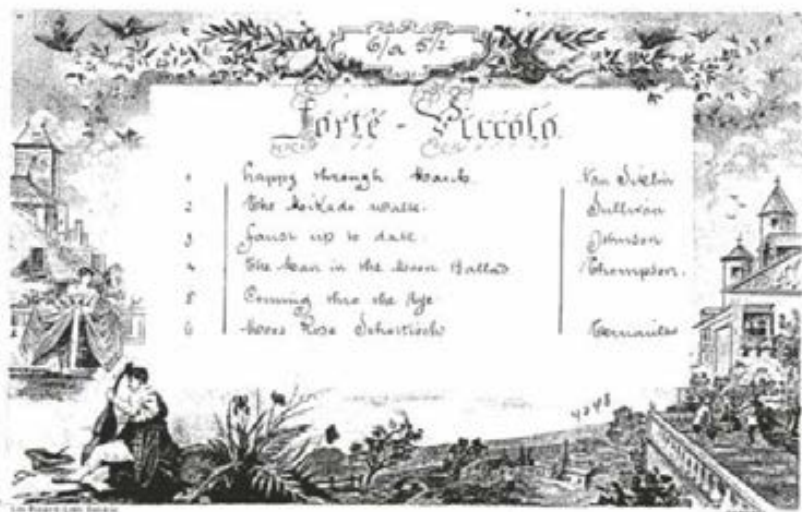 6/a 5/2
Forte - Piccolo
1 Happy through March.
2 The Mikado walse. Sullivan
3 Faust up to date. Johnson
4 The Man in the Moon Ballad Thompson.
5 Coming thro the Rye
6 Moos Rose Schottisch
4248